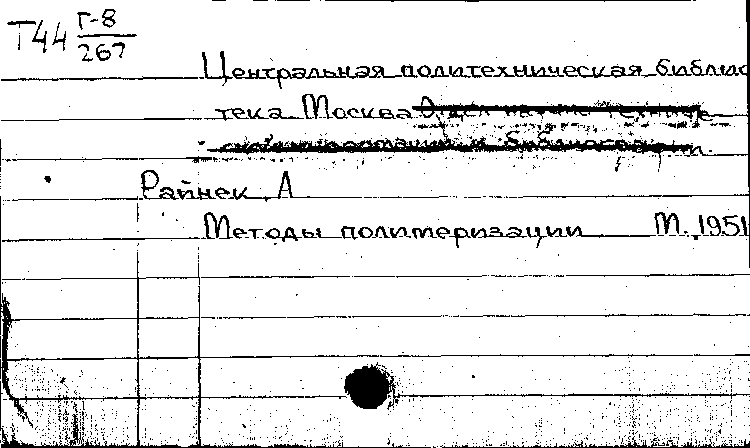 Т44 Г-8/267
Центральная политехническая библио
тека Москва
Райнек Л
Методы полимеризации М. 1951